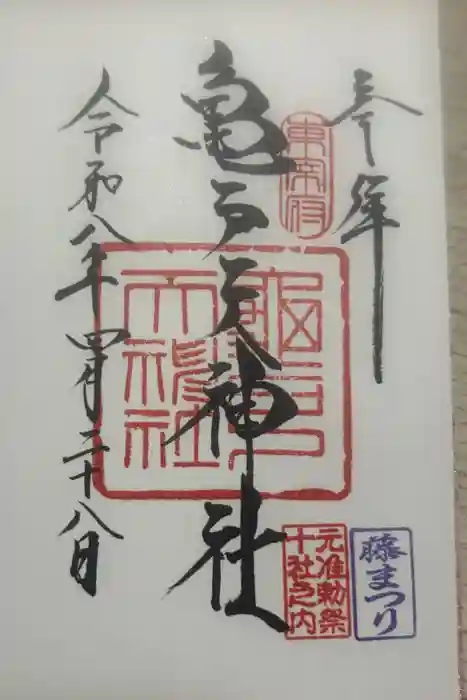 奉拝
東宰府
亀戸天神社
龜戸
天神社
令和八年四月二十八日
元准勅祭
十社之内
藤まつり